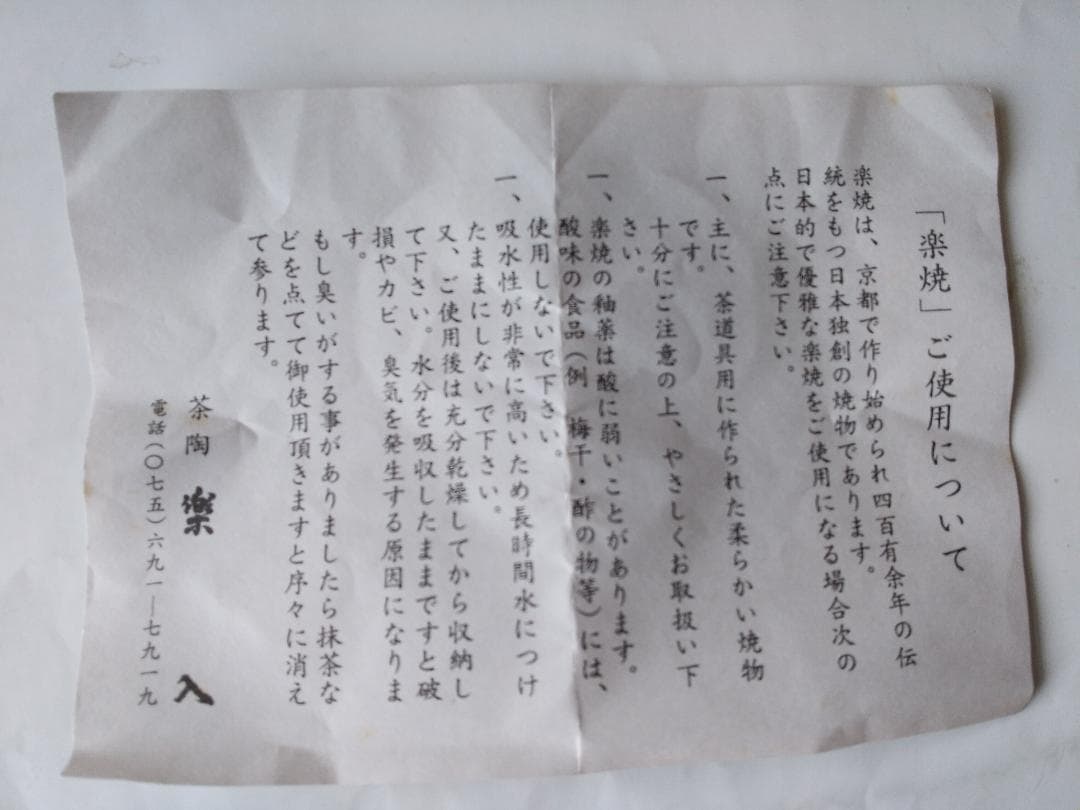 「楽焼」ご使用について
楽焼は、京都で作り始められ四百有余年の伝
統をもつ日本独創の焼物であります。
日本的で優雅な楽焼をご使用になる場合次の
点にご注意下さい。
一、主に、茶道具用に作られた柔らかい焼物
です。
十分にご注意の上、やさしくお取扱い下
さい。
一、楽焼の釉薬は酸に弱いことがあります。
酸味の食品(例 梅干・酢の物等)には、
使用しないで下さい。
一、吸水性が非常に高いため長時間水につけ
たままにしないで下さい。
又、ご使用後は充分乾燥してから収納し
て下さい。水分を吸収したままですと破
損やカビ、臭気を発生する原因になりま
す。
もし臭いがする事がありましたら抹茶な
どを点てて御使用頂きますと序々に消え
て参ります。
茶陶 楽入
電話(〇七五)六九一―七九一九